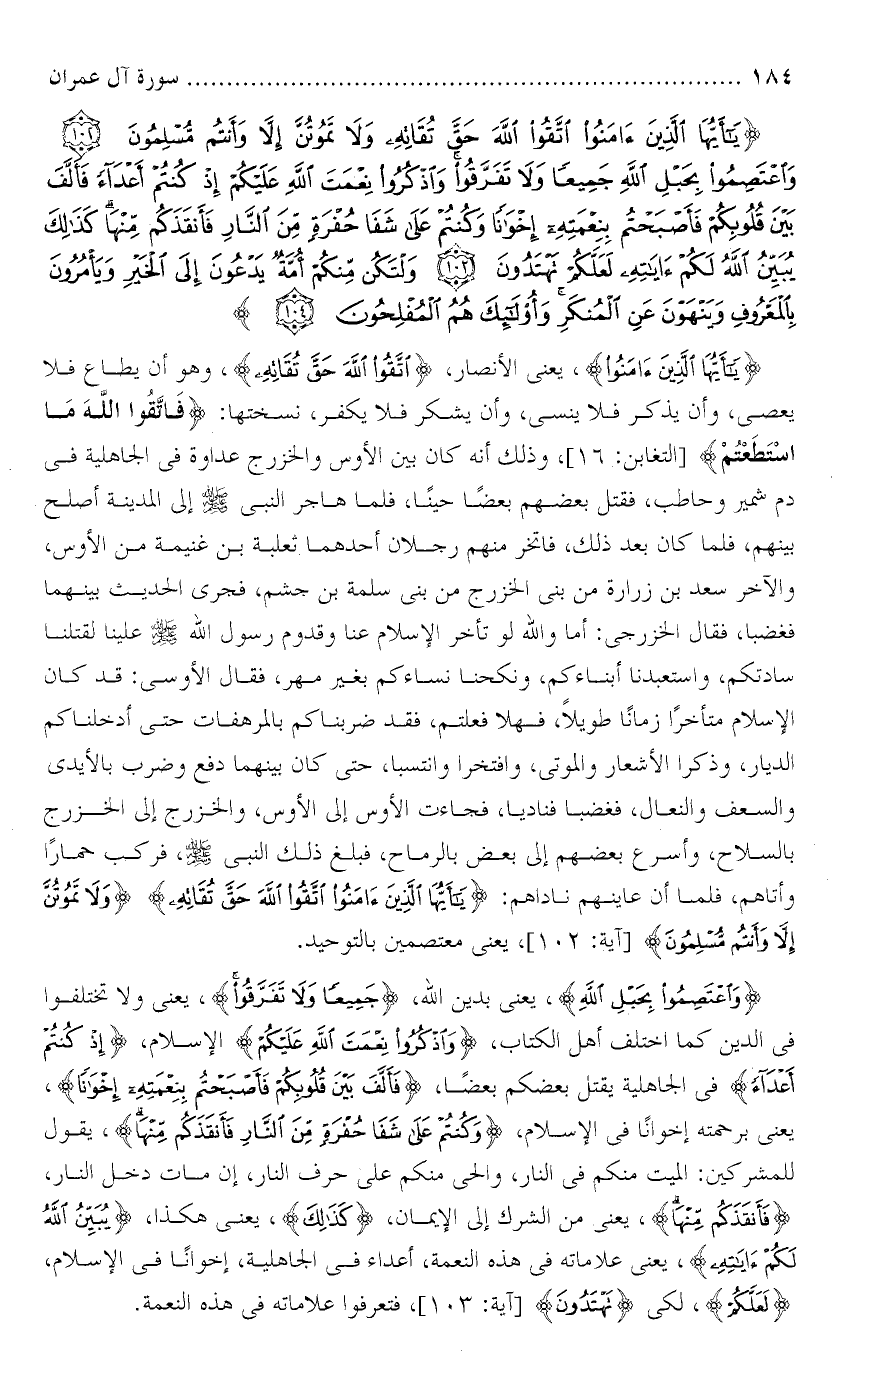 ١٨٤ ...................................................................... سورة آل عمران
﴿ يَٰٓأَيُّهَا ٱلَّذِينَ ءَامَنُوا۟ ٱتَّقُوا۟ ٱللَّهَ حَقَّ تُقَاتِهِۦ وَلَا تَمُوتُنَّ إِلَّا وَأَنتُم مُّسْلِمُونَ ١٠٢
وَٱعْتَصِمُوا۟ بِحَبْلِ ٱللَّهِ جَمِيعًا وَلَا تَفَرَّقُوا۟ۚ وَٱذْكُرُوا۟ نِعْمَتَ ٱللَّهِ عَلَيْكُمْ إِذْ كُنتُمْ أَعْدَآءً فَأَلَّفَ
بَيْنَ قُلُوبِكُمْ فَأَصْبَحْتُم بِنِعْمَتِهِۦٓ إِخْوَٰنًا وَكُنتُمْ عَلَىٰ شَفَا حُفْرَةٍ مِّنَ ٱلنَّارِ فَأَنقَذَكُم مِّنْهَاۗ كَذَٰلِكَ
يُبَيِّنُ ٱللَّهُ لَكُمْ ءَايَٰتِهِۦ لَعَلَّكُمْ تَهْتَدُونَ ١٠٣ وَلْتَكُن مِّنكُمْ أُمَّةٌ يَدْعُونَ إِلَى ٱلْخَيْرِ وَيَأْمُرُونَ
بِٱلْمَعْرُوفِ وَيَنْهَوْنَ عَنِ ٱلْمُنكَرِۚ وَأُو۟لَٰٓئِكَ هُمُ ٱلْمُفْلِحُونَ ١٠٤ ﴾
﴿يَٰٓأَيُّهَا ٱلَّذِينَ ءَامَنُوا۟﴾، يعنى الأنصار، ﴿ٱتَّقُوا۟ ٱللَّهَ حَقَّ تُقَاتِهِۦ﴾، وهو أن يطاع فلا
يعصى، وأن يذكر فلا ينسى، وأن يشكر فلا يكفر، نسختها: ﴿فَاتَّقُوا اللَّهَ مَا
اسْتَطَعْتُمْ﴾ [التغابن: ١٦]، وذلك أنه كان بين الأوس والخزرج عداوة فى الجاهلية فى
دم شمير وحاطب، فقتل بعضهم بعضًا حينًا، فلما هاجر النبى ﷺ إلى المدينة أصلح
بينهم، فلما كان بعد ذلك، فاتخر منهم رجلان أحدهما ثعلبة بن غنيمة من الأوس،
والآخر سعد بن زرارة من بنى الخزرج من بنى سلمة بن جشم، فجرى الحديث بينهما
فغضبا، فقال الخزرجى: أما والله لو تأخر الإسلام عنا وقدوم رسول الله ﷺ علينا لقتلنا
سادتكم، واستعبدنا أبناءكم، ونكحنا نساءكم بغير مهر، فقال الأوسى: قد كان
الإسلام متأخرًا زمانًا طويلاً، فهلا فعلتم، فقد ضربناكم بالمرهفات حتى أدخلناكم
الديار، وذكرا الأشعار والموتى، وافتخرا وانتسبا، حتى كان بينهما دفع وضرب بالأيدى
والسعف والنعال، فغضبا فناديا، فجاءت الأوس إلى الأوس، والخزرج إلى الخزرج
بالسلاح، وأسرع بعضهم إلى بعض بالرماح، فبلغ ذلك النبى ﷺ، فركب حمارًا
وأتاهم، فلما أن عاينهم ناداهم: ﴿يَٰٓأَيُّهَا ٱلَّذِينَ ءَامَنُوا۟ ٱتَّقُوا۟ ٱللَّهَ حَقَّ تُقَاتِهِۦ﴾ ﴿وَلَا تَمُوتُنَّ
إِلَّا وَأَنتُم مُّسْلِمُونَ﴾ [آية: ١٠٢]، يعنى معتصمين بالتوحيد.
﴿وَٱعْتَصِمُوا۟ بِحَبْلِ ٱللَّهِ﴾، يعنى بدين الله، ﴿جَمِيعًا وَلَا تَفَرَّقُوا۟ۚ﴾، يعنى ولا تختلفوا
فى الدين كما اختلف أهل الكتاب، ﴿وَٱذْكُرُوا۟ نِعْمَتَ ٱللَّهِ عَلَيْكُمْ﴾ الإسلام، ﴿إِذْ كُنتُمْ
أَعْدَآءً﴾ فى الجاهلية يقتل بعضكم بعضًا، ﴿فَأَلَّفَ بَيْنَ قُلُوبِكُمْ فَأَصْبَحْتُم بِنِعْمَتِهِۦٓ إِخْوَٰنًا﴾،
يعنى برحمته إخوانًا فى الإسلام، ﴿وَكُنتُمْ عَلَىٰ شَفَا حُفْرَةٍ مِّنَ ٱلنَّارِ فَأَنقَذَكُم مِّنْهَاۗ﴾، يقول
للمشركين: الميت منكم فى النار، والحى منكم على حرف النار، إن مات دخل النار،
﴿فَأَنقَذَكُم مِّنْهَاۗ﴾، يعنى من الشرك إلى الإيمان، ﴿كَذَٰلِكَ﴾، يعنى هكذا، ﴿يُبَيِّنُ ٱللَّهُ
لَكُمْ ءَايَٰتِهِۦ﴾، يعنى علاماته فى هذه النعمة، أعداء فى الجاهلية، إخوانًا فى الإسلام،
﴿لَعَلَّكُمْ﴾، لكى ﴿تَهْتَدُونَ﴾ [آية: ١٠٣]، فتعرفوا علاماته فى هذه النعمة.